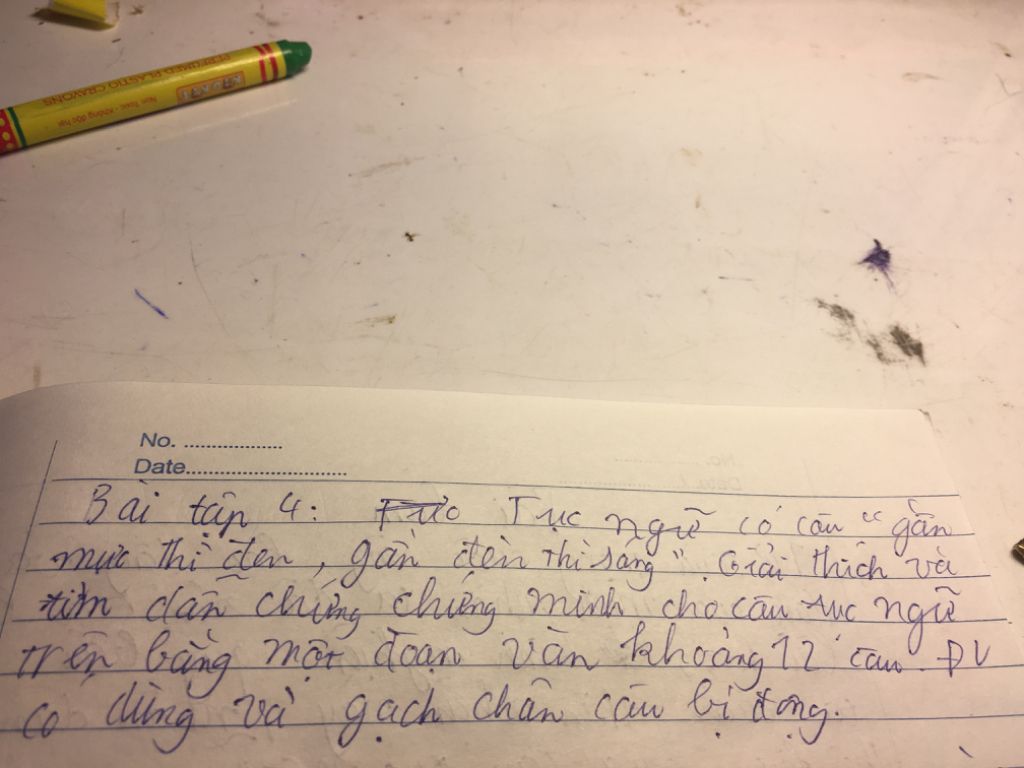 PERFUMED PLASTIC CRAYONS
Non Toxic - Không độc hại
No. ..................
Date.............................
Bài tập 4: Tục ngữ có câu "gần
mực thì đen, gần đèn thì sáng". Giải thích và
tìm dẫn chứng chứng minh cho câu tục ngữ
trên bằng một đoạn văn khoảng 12 câu. ĐV
có dùng và gạch chân câu bị động.